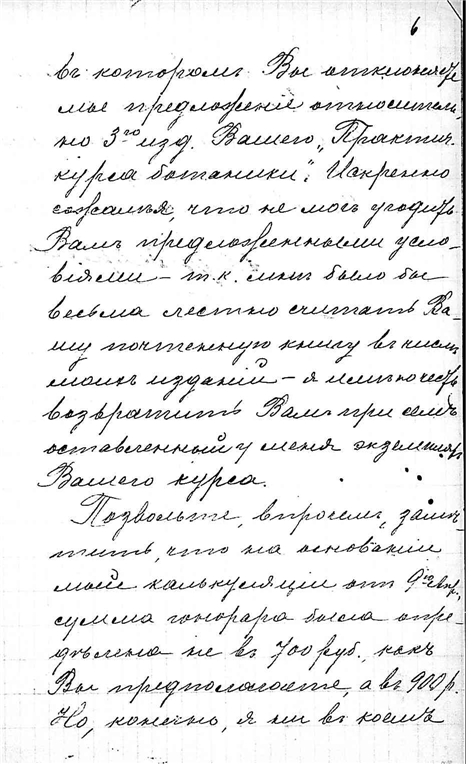 6
въ которомъ Вы отклоняете
мое предложеніе относитель-
но 3го изд. Вашего „Практич.
курса ботаники“. Искренно
сожалѣя, что не могъ угодить
Вамъ предложенными усло-
віями – т.к. мнѣ было бы
весьма лестно считать Ва-
шу почтенную книгу въ числѣ
моихъ изданій – я имѣю честь
возвратить Вамъ при семъ
оставленный у меня экземпляръ
Вашего курса.
Позвольте, впрочемъ, замѣ-
тить, что на основаніи
моей калькуляціи отъ 9го
сумма гонорара была опре-
дѣлена не въ 700 руб., какъ
Вы предполагаете, а въ 900 р.
Но, конечно, я ни въ коемъ